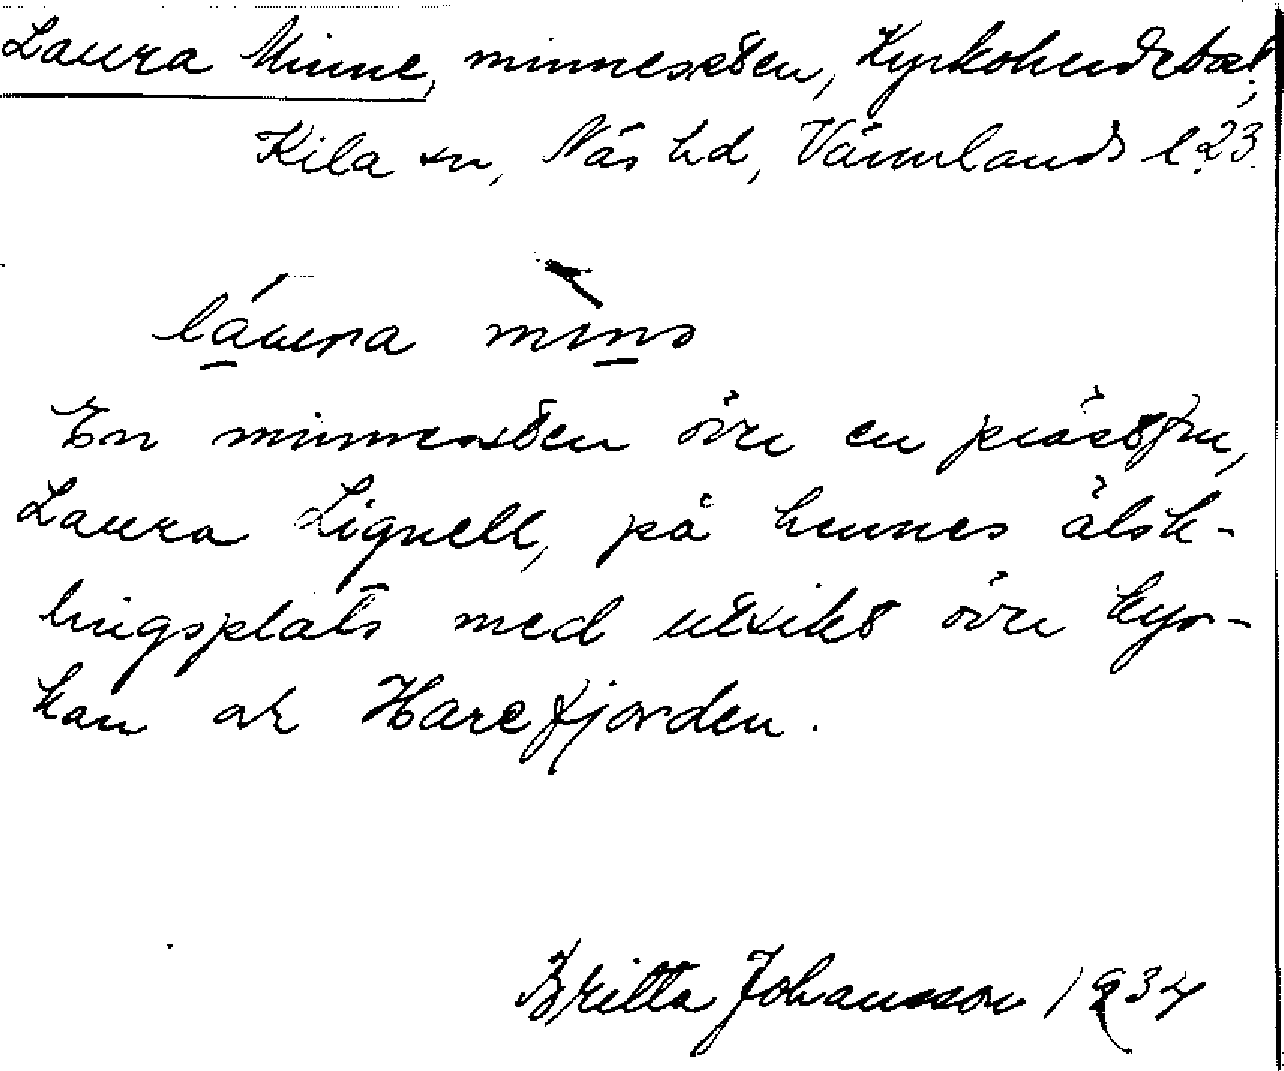 Laura Minne, minnessten, Kyrkoherdebost.,
Kila sn, Näs hd, Värmlands l. 23.
làura mìns
En minnessten över en prästfru,
Laura Lignell, på hennes älsk-
lingsplats med utsikt över kyr-
kan ok Harefjorden.
Britta Johansson 1934